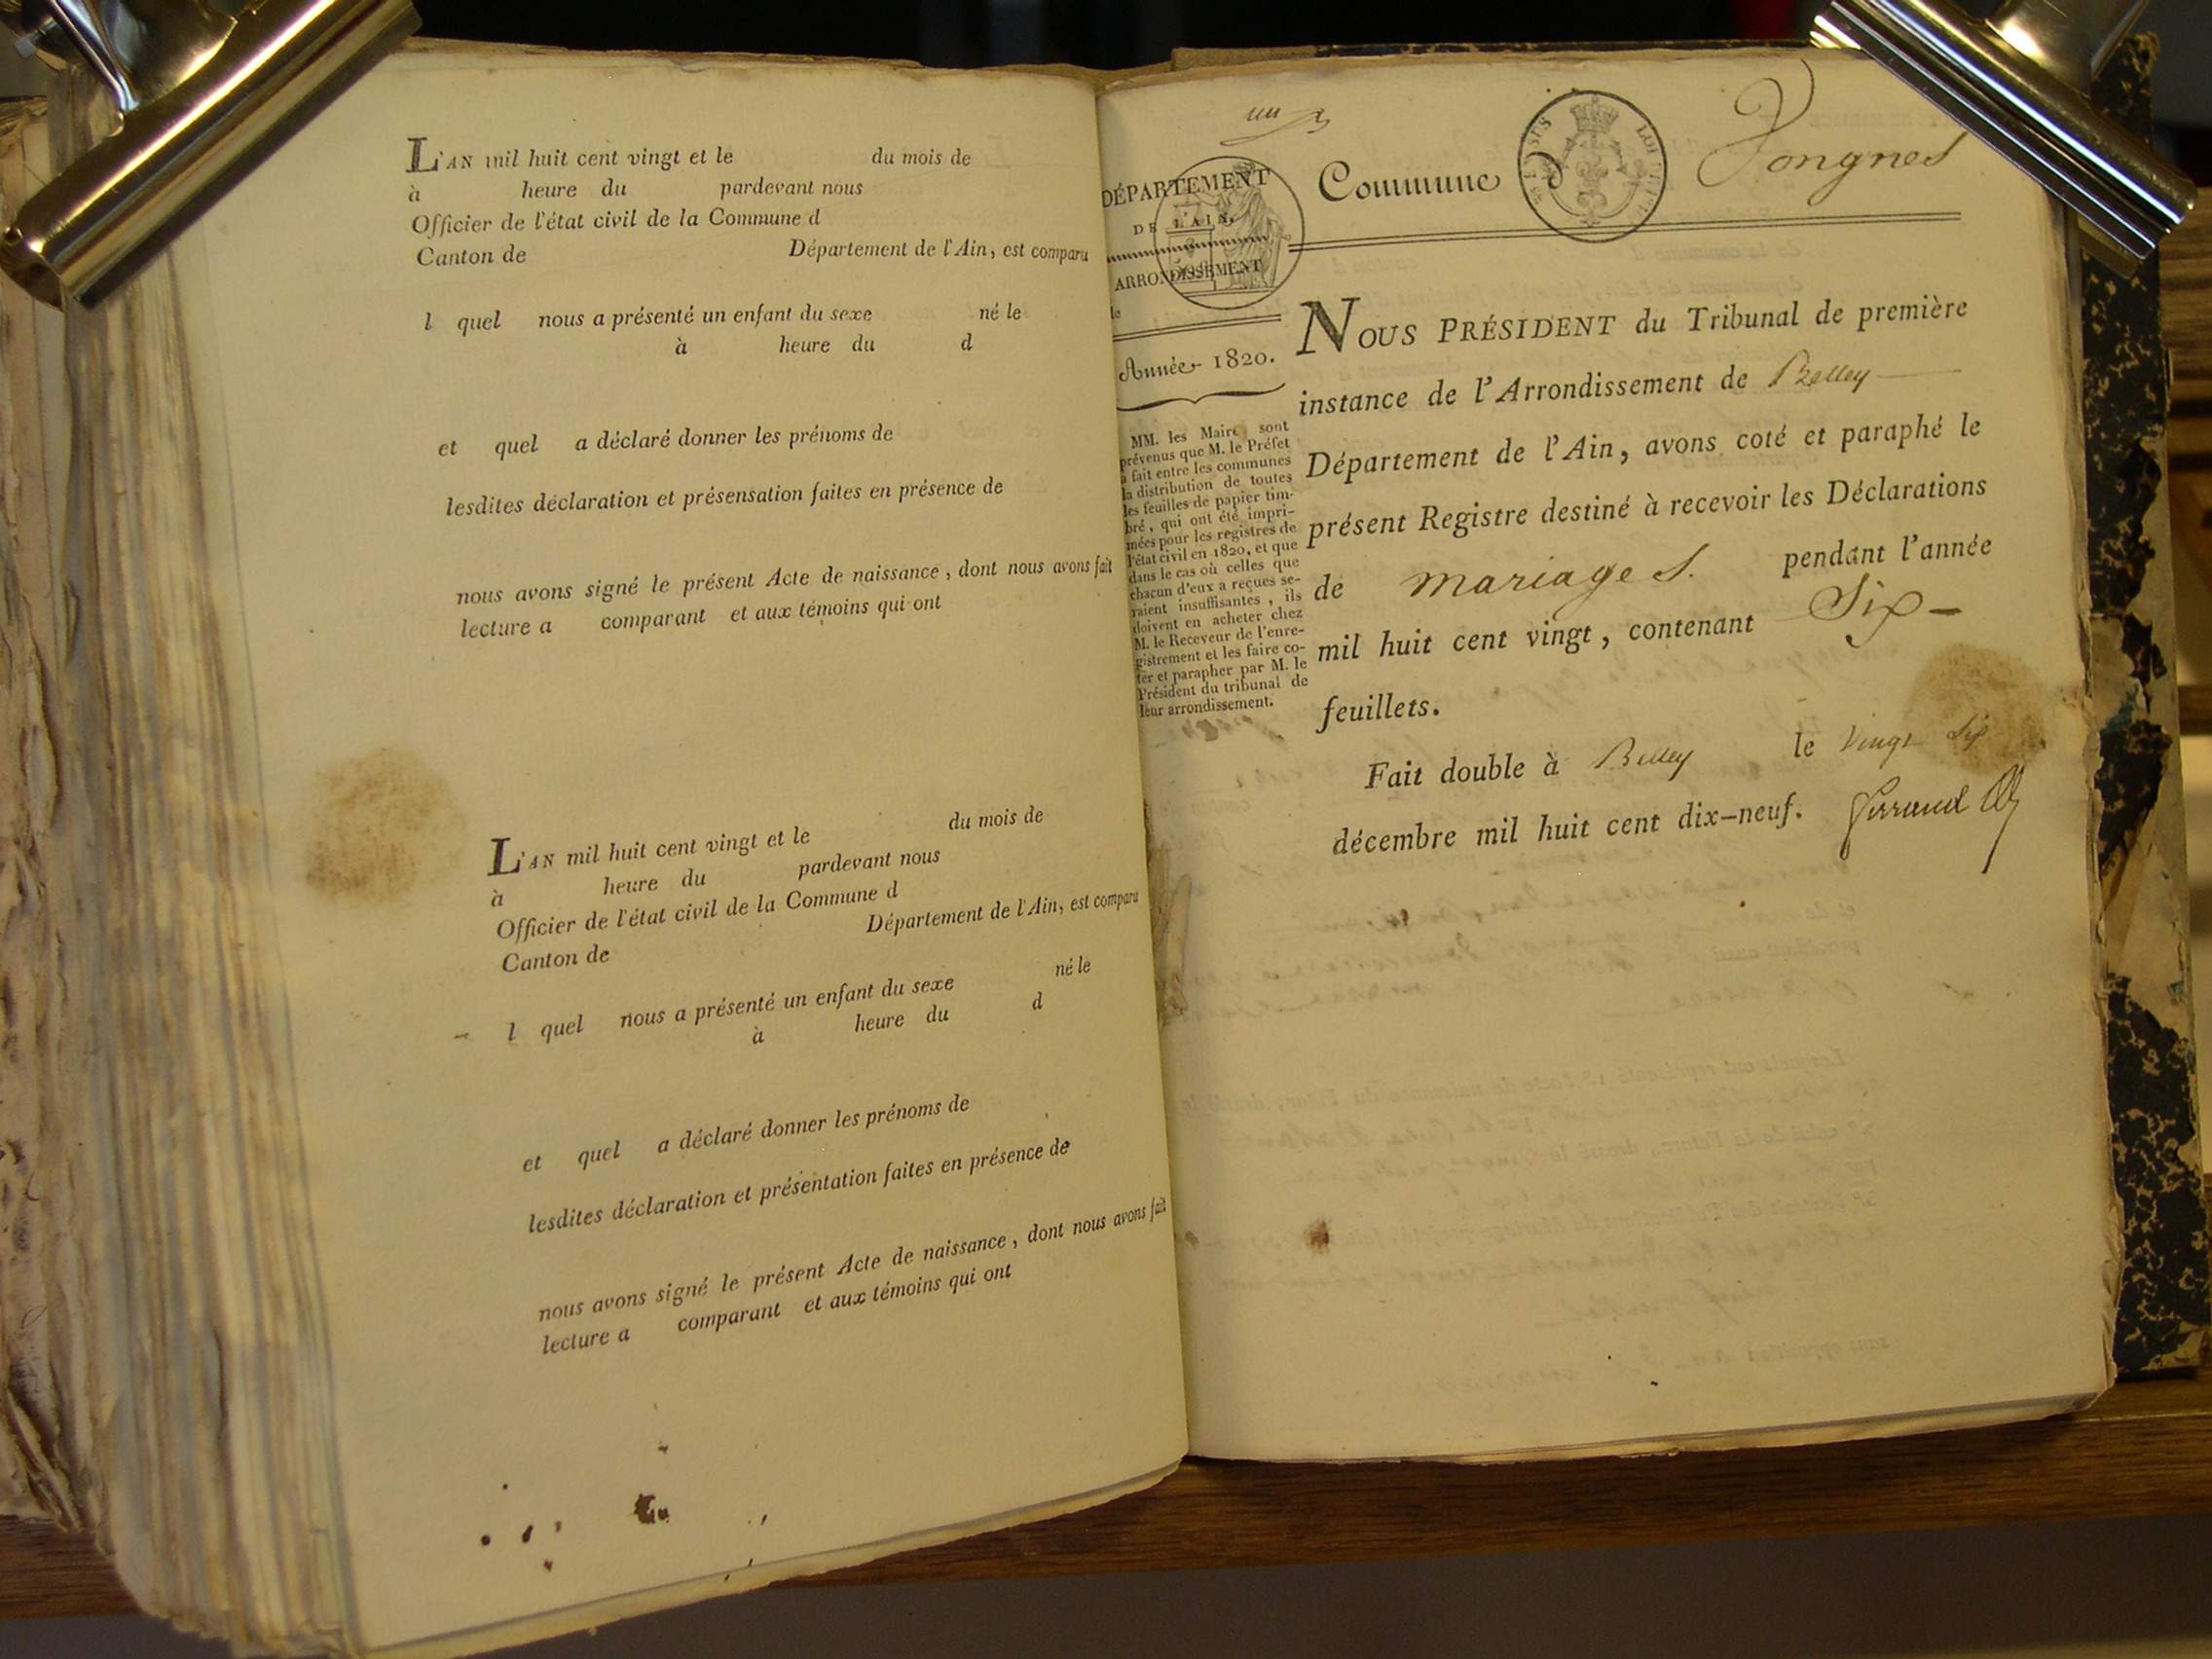 L'AN mil huit cent vingt et le du mois de
à heure du pardevant nous
Officier de l'état civil de la Commune d
Canton de Département de l'Ain, est comparu
l quel nous a présenté un enfant du sexe né le
à heure du d
et quel a déclaré donner les prénoms de
lesdites déclaration et présensation faites en présence de
nous avons signé le présent Acte de naissance, dont nous avons fait
lecture a comparant et aux témoins qui ont
L'AN mil huit cent vingt et le du mois de
à heure du pardevant nous
Officier de l'état civil de la Commune d
Canton de Département de l'Ain, est comparu
l quel nous a présenté un enfant du sexe né le
à heure du d
et quel a déclaré donner les prénoms de
lesdites déclaration et présentation faites en présence de
nous avons signé le présent Acte de naissance, dont nous avons fait
lecture a comparant et aux témoins qui ont
un
DÉPARTEMENT
DE L'AIN.
ARRONDISSEMENT
de
Année 1820.
MM. les Maires sont
prévenus que M. le Préfet
a fait entre les communes
la distribution de toutes
les feuilles de papier tim-
bré, qui ont été impri-
mées pour les registres de
l'état civil en 1820, et que
dans le cas où celles que
chacun d'eux a reçues se-
raient insuffisantes, ils
doivent en acheter chez
M. le Receveur de l'enre-
gistrement et les faire co-
ter et parapher par M. le
Président du tribunal de
leur arrondissement.
Commune d Vongnes
NOUS PRÉSIDENT du Tribunal de première
instance de l'Arrondissement de Belley
Département de l'Ain, avons coté et paraphé le
présent Registre destiné à recevoir les Déclarations
de mariages. pendant l'année
mil huit cent vingt, contenant Six
feuillets.
Fait double à Belley le vingt Six
décembre mil huit cent dix-neuf.